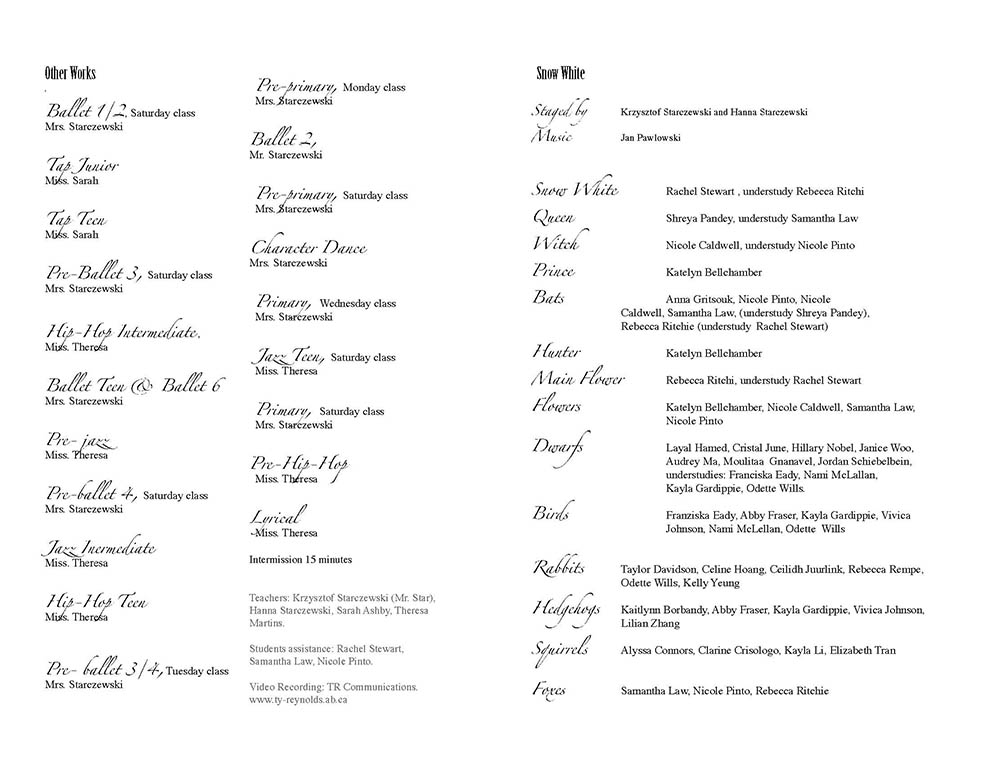 Other Works
Ballet 1/2, Saturday class
Mrs. Starczewski
Tap Junior
Miss. Sarah
Tap Teen
Miss. Sarah
Pre-Ballet 3, Saturday class
Mrs. Starczewski
Hip-Hop Intermediate,
Miss. Theresa
Ballet Teen & Ballet 6
Mrs. Starczewski
Pre- jazz
Miss. Theresa
Pre-ballet 4, Saturday class
Mrs. Starczewski
Jazz Inermediate
Miss. Theresa
Hip-Hop Teen
Miss. Theresa
Pre- ballet 3/4, Tuesday class
Mrs. Starczewski
Pre-primary, Monday class
Mrs. Starczewski
Ballet 2,
Mr. Starczewski
Pre-primary, Saturday class
Mrs. Starczewski
Character Dance
Mrs. Starczewski
Primary, Wednesday class
Mrs. Starczewski
Jazz Teen, Saturday class
Miss. Theresa
Primary, Saturday class
Mrs. Starczewski
Pre-Hip-Hop
Miss. Theresa
Lyrical
-Miss. Theresa
Intermission 15 minutes
Teachers: Krzysztof Starczewski (Mr. Star),
Hanna Starczewski, Sarah Ashby, Theresa
Martins.
Students assistance: Rachel Stewart,
Samantha Law, Nicole Pinto.
Video Recording: TR Communications.
www.ty-reynolds.ab.ca
Snow White
Staged by Krzysztof Starczewski and Hanna Starczewski
Music Jan Pawlowski
Snow White Rachel Stewart , understudy Rebecca Ritchi
Queen Shreya Pandey, understudy Samantha Law
Witch Nicole Caldwell, understudy Nicole Pinto
Prince Katelyn Bellchamber
Bats Anna Gritsouk, Nicole Pinto, Nicole
Caldwell, Samantha Law, (understudy Shreya Pandey),
Rebecca Ritchie (understudy Rachel Stewart)
Hunter Katelyn Bellchamber
Main Flower Rebecca Ritchi, understudy Rachel Stewart
Flowers Katelyn Bellchamber, Nicole Caldwell, Samantha Law,
Nicole Pinto
Dwarfs Layal Hamed, Cristal June, Hillary Nobel, Janice Woo,
Audrey Ma, Moulitaa Gnanavel, Jordan Schiebelbein,
understudies: Franciska Eady, Nami McLallan,
Kayla Gardippie, Odette Wills.
Birds Franziska Eady, Abby Fraser, Kayla Gardippie, Vivica
Johnson, Nami McLellan, Odette Wills
Rabbits Taylor Davidson, Celine Hoang, Ceilidh Juurlink, Rebecca Rempe,
Odette Wills, Kelly Yeung
Hedgehogs Kaitlynn Borbandy, Abby Fraser, Kayla Gardippie, Vivica Johnson,
Lilian Zhang
Squirrels Alyssa Connors, Clarine Crisologo, Kayla Li, Elizabeth Tran
Foxes Samantha Law, Nicole Pinto, Rebecca Ritchie